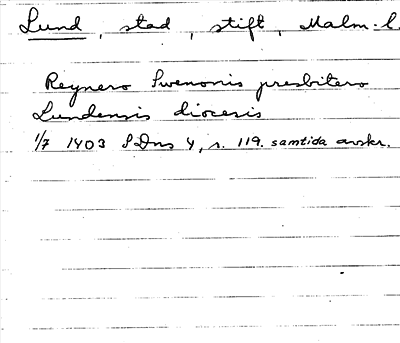 Lund, stad, stift, Malm. l.
Reynero Swenonis presbitero
Lundensis diocesis
1/7 1403 SDns 4, s. 119. samtida avskr.